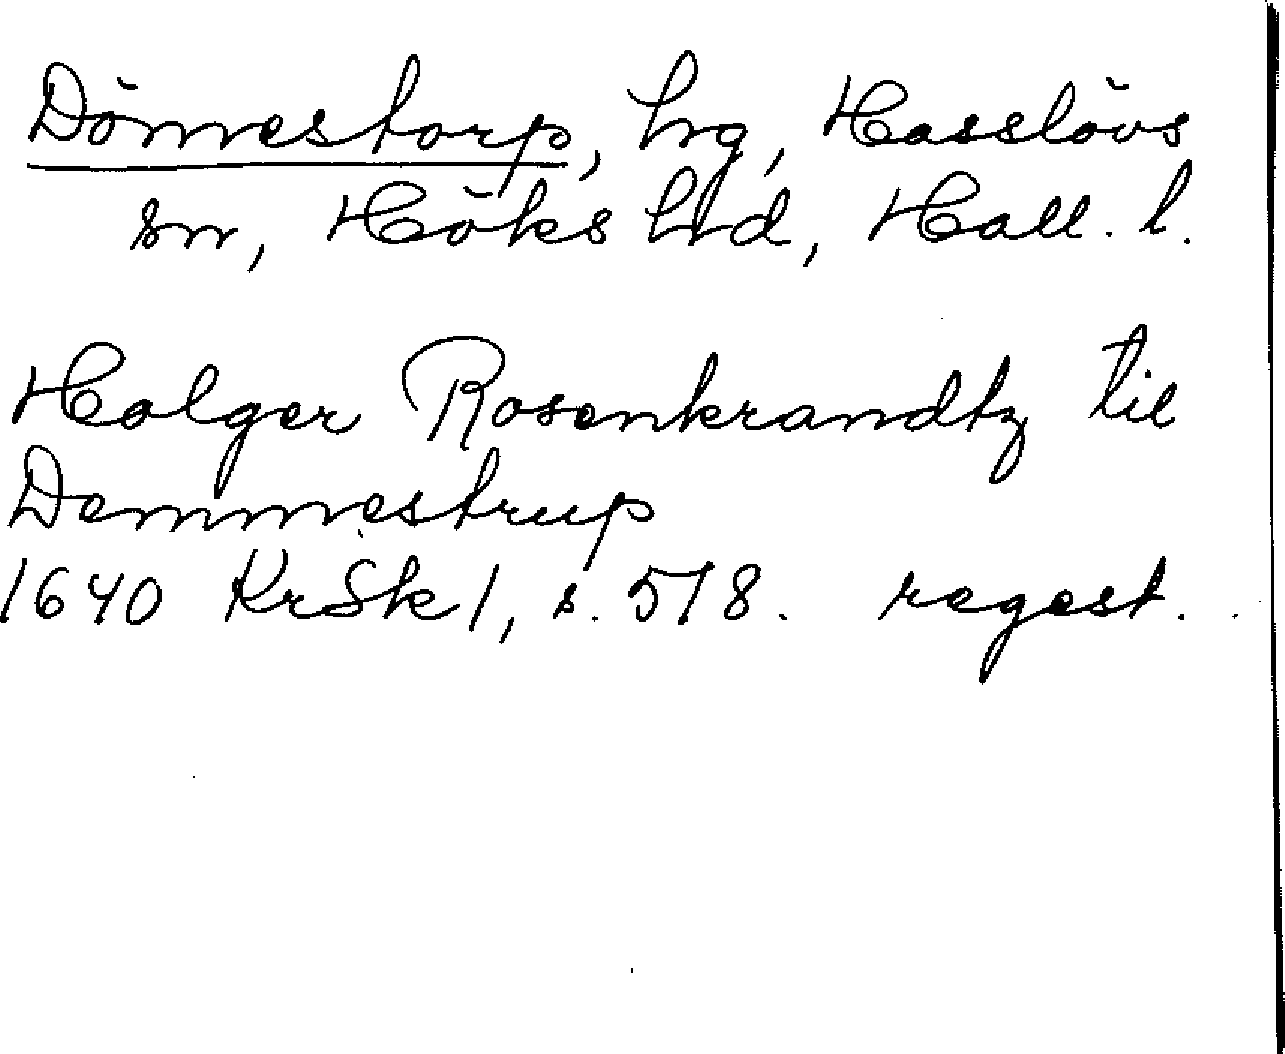 Dömestorp, hrg, Hasslövs
sn, Höks hrd, Hall. l.
Holger Rosenkrandtz til
Demmestrup
1640 KrSk 1, s. 578. regest.